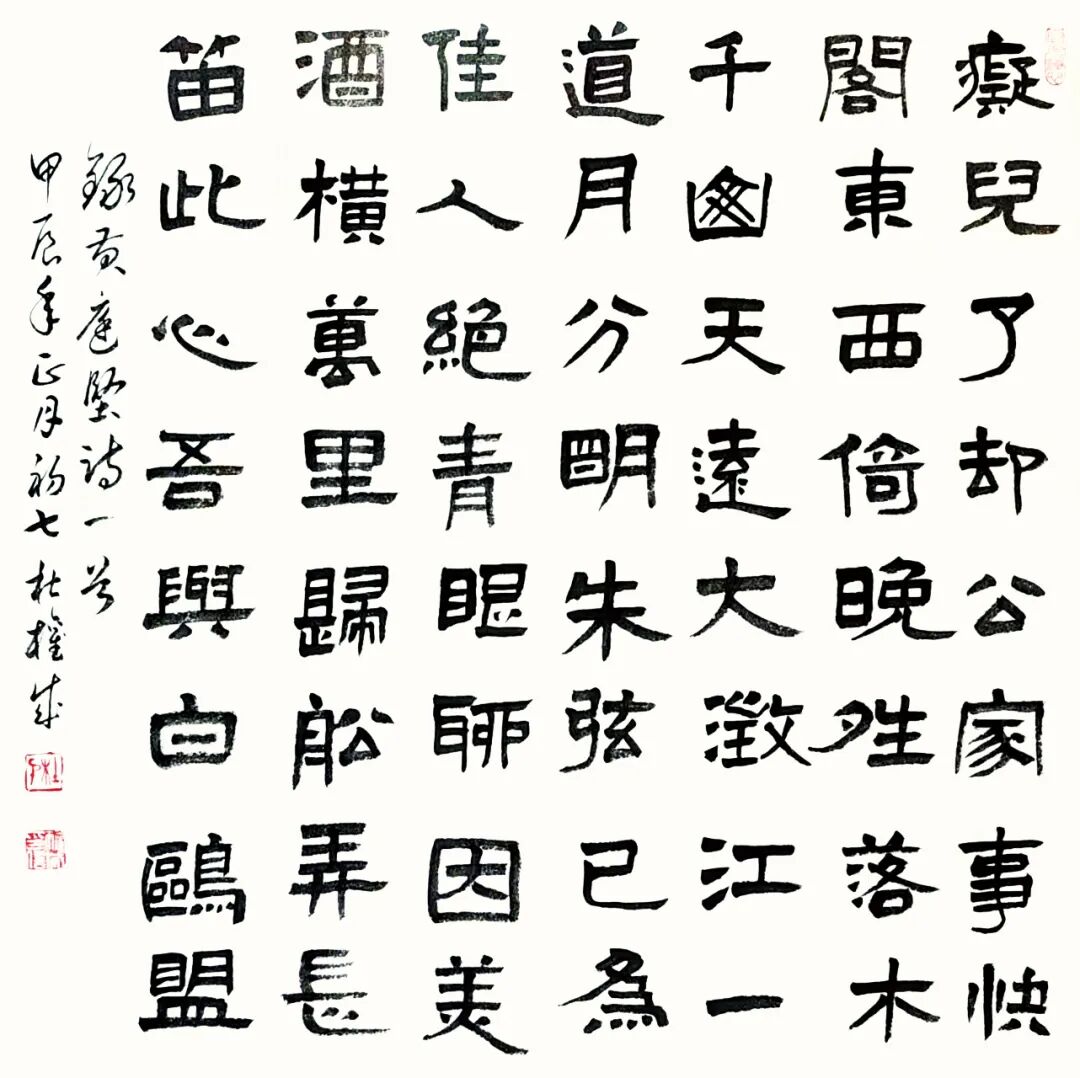 癡兒了却公家事快
閣東西倚晚夝落木
千囪天遠大澂江一
道月分朙朱弦已為
佳人絕青眼聊因美
酒橫萬里歸舩弄長
笛此心吾與白鷗盟
錄黃庭堅詩一首
甲辰年正月初七 杜權成